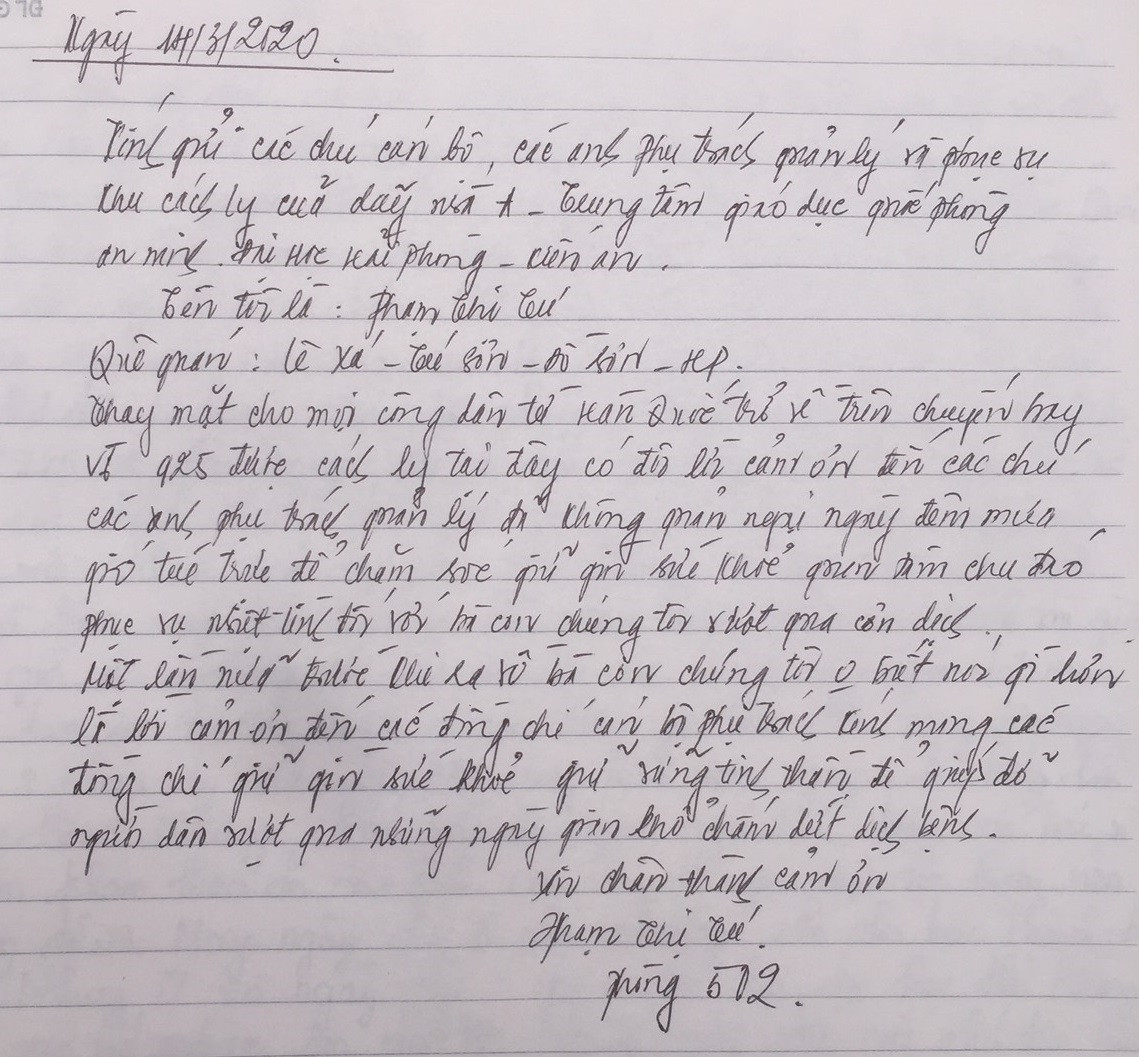 Ngày 14/3/2020.
Kính gửi các chú cán bộ, các anh phụ trách quản lý và phục vụ
khu cách ly của dãy nhà A - Trung tâm giáo dục quốc phòng
an ninh. Đại học Hải Phòng - Kiến An.
Tên tôi là: Phạm Thị Tú
Quê quán: Lê Xá - Tú Sơn - Đồ Sơn - HP.
Thay mặt cho mọi công dân từ Hàn Quốc trở về trên chuyến bay
925 được cách ly tại đây có đôi lời cảm ơn đến các chú
các anh phụ trách quản lý đã không quản ngại ngày đêm mưa
gió túc trực để chăm sóc giữ gìn sức khoẻ quan tâm chu đáo
phục vụ nhiệt tình đối với bà con chúng tôi vượt qua cơn dịch.
Một lần nữa trước khi ra về bà con chúng tôi o biết nói gì hơn
là lời cảm ơn đến các đồng chí cán bộ phụ trách kính mong các
đồng chí giữ gìn sức khoẻ giữ vững tinh thần để giúp đỡ
người dân vượt qua những ngày gian khổ chấm dứt dịch bệnh.
Xin chân thành cảm ơn
Phạm Thị Tú.
Phòng 502.